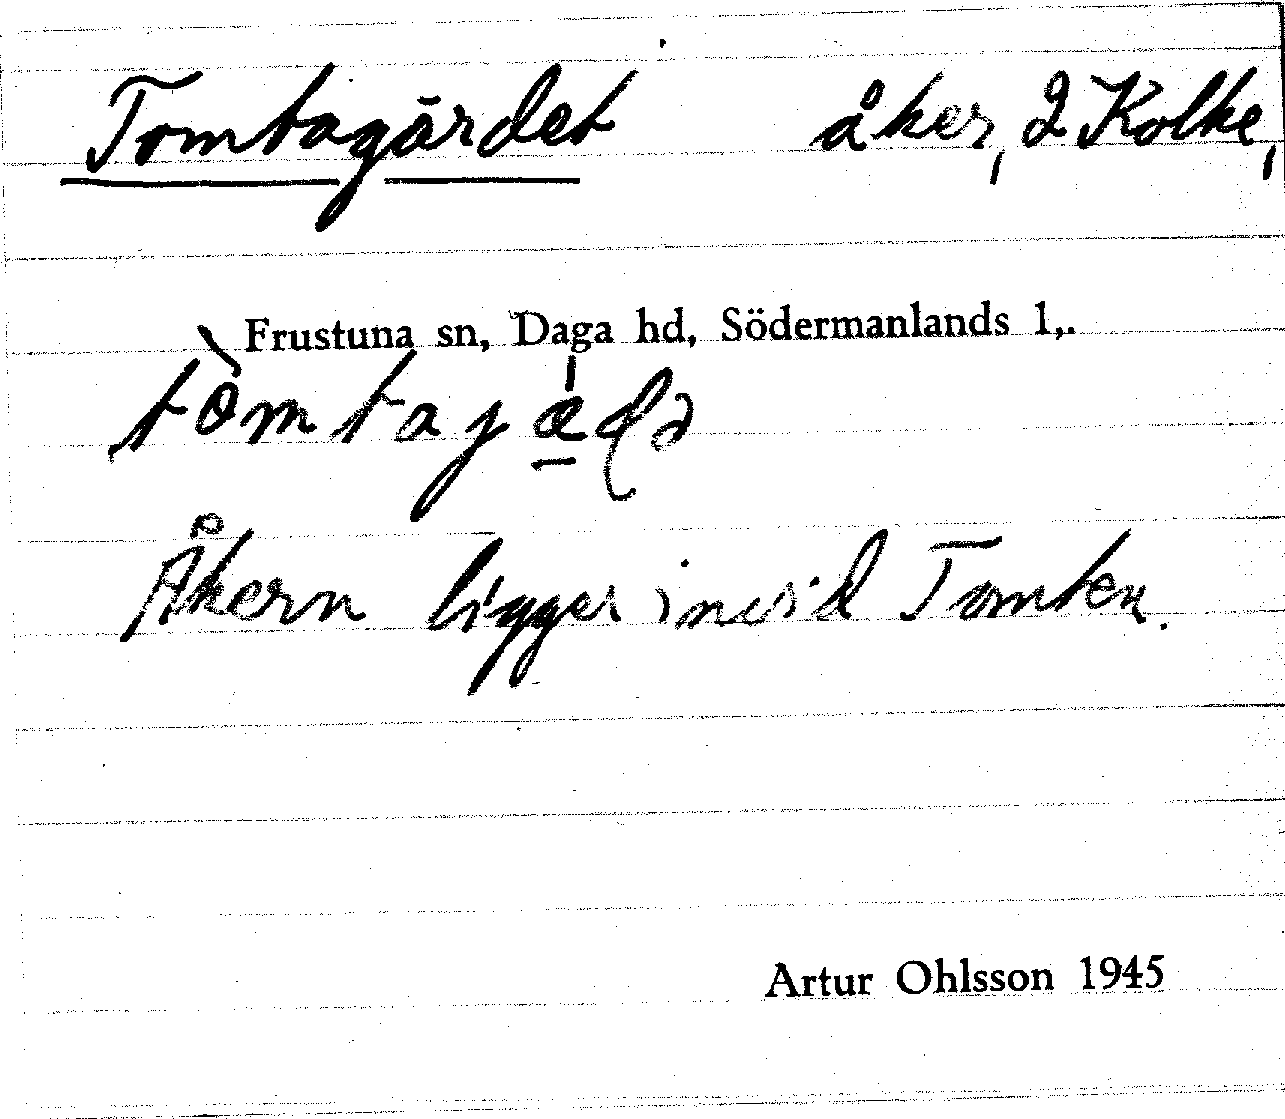 Tomtagärdet åker, 2 Kolke,
Frustuna sn, Daga hd, Södermanlands l,.
Åkern ligger invid Tomten.
Artur Ohlsson 1945